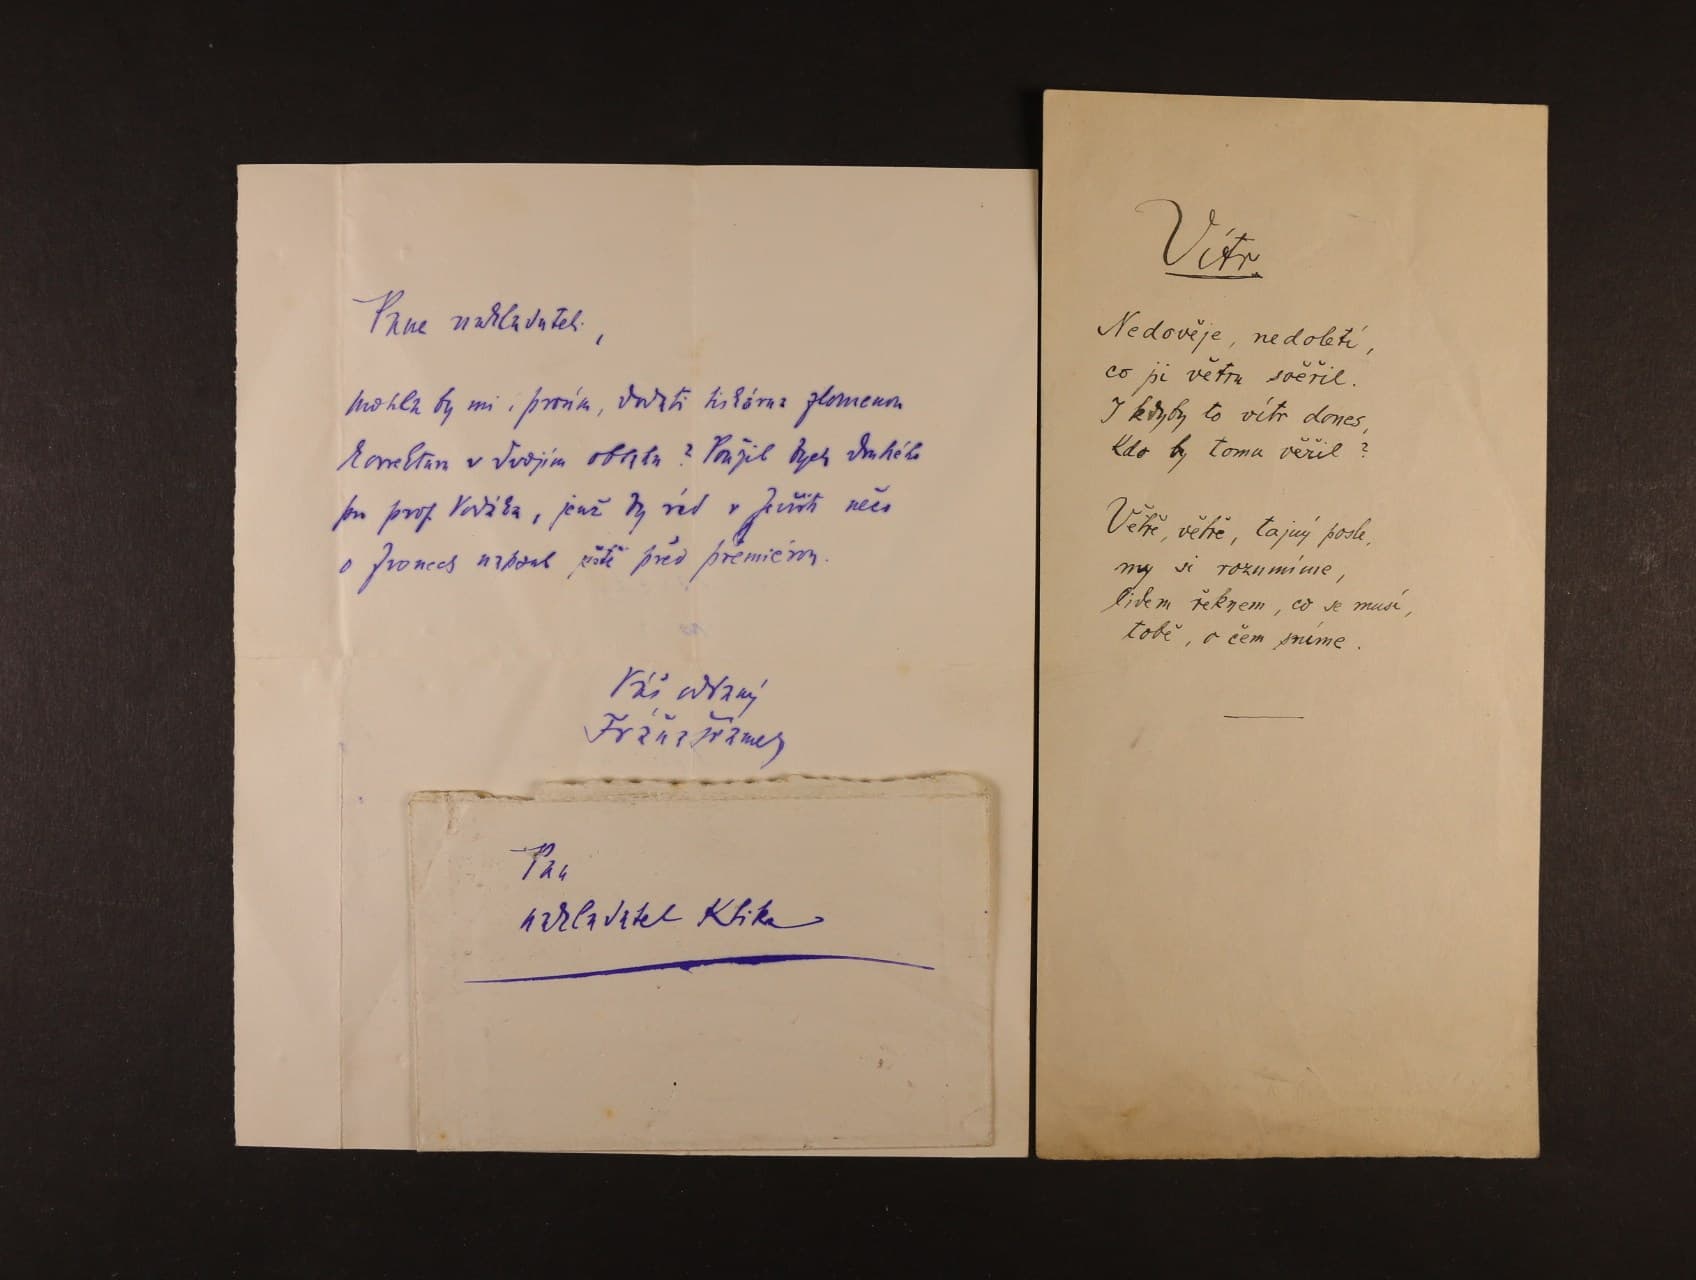 Pane nakladateli,
mohla by mi, prosím, dodati tiskárna zlomenou
korrekturu v dvojím obtahu? Použil bych druhého
pro prof. Vodáka, jenž by rád v Jevišti něco
o Zvonech napsal ještě před premiérou.
Váš oddaný
Fráňa Šrámek
Pan
nakladatel Klika
Vítr
Nedověje, nedoletí,
co jsi větru svěřil.
I kdyby to vítr dones,
Kdo by tomu věřil?
Větře, větře, tajný posle,
my si rozumíme,
lidem řeknem, co se musí,
tobě, o čem sníme.